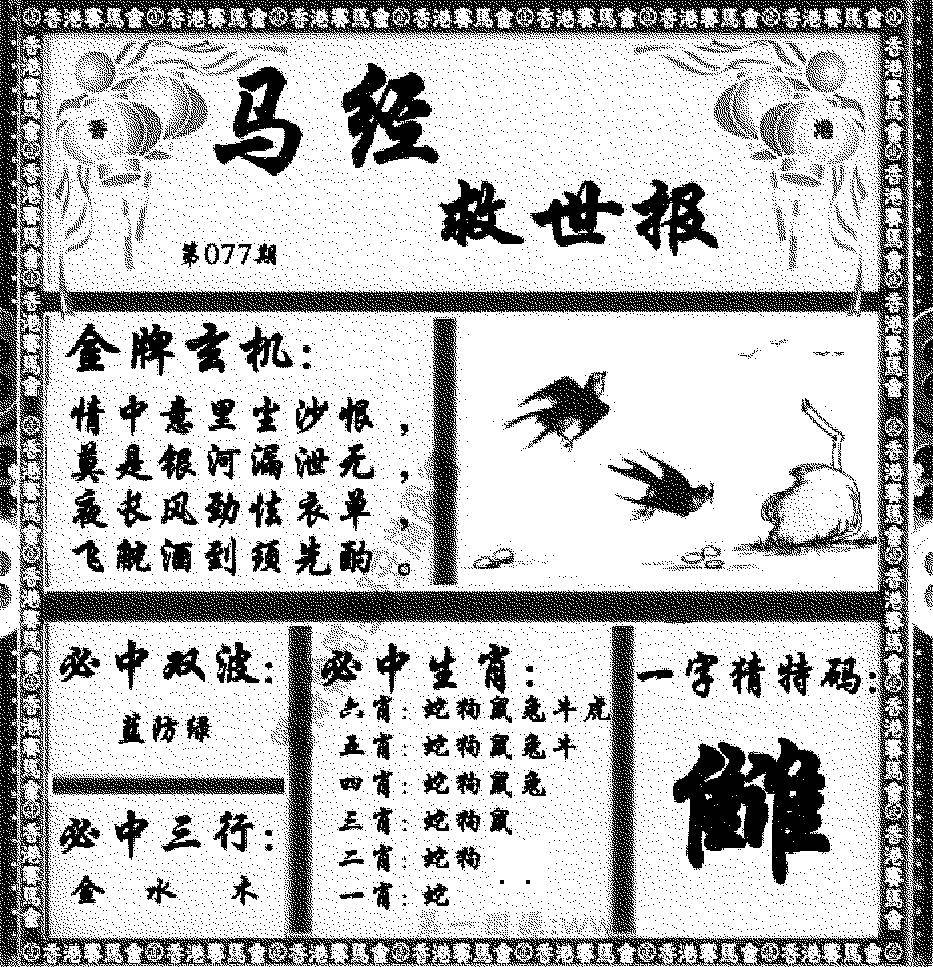 香港賽馬會 香港賽馬會 香港賽馬會 香港賽馬會 香港賽馬會 香港賽馬會 香港賽馬會
香
港
马经
救世报
第077期
金牌玄机：
情中意里尘沙恨，
莫是银河漏泄无，
夜长风劲怯衣单，
飞觥酒到须先酌。
必中双波：
蓝防绿
必中三行：
金 水 木
必中生肖：
六肖：蛇狗鼠兔牛虎
五肖：蛇狗鼠兔牛
四肖：蛇狗鼠兔
三肖：蛇狗鼠
二肖：蛇狗
一肖：蛇
一字猜特码：
雠
香港賽馬會 香港賽馬會 香港賽馬會 香港賽馬會 香港賽馬會 香港賽馬會 香港賽馬會